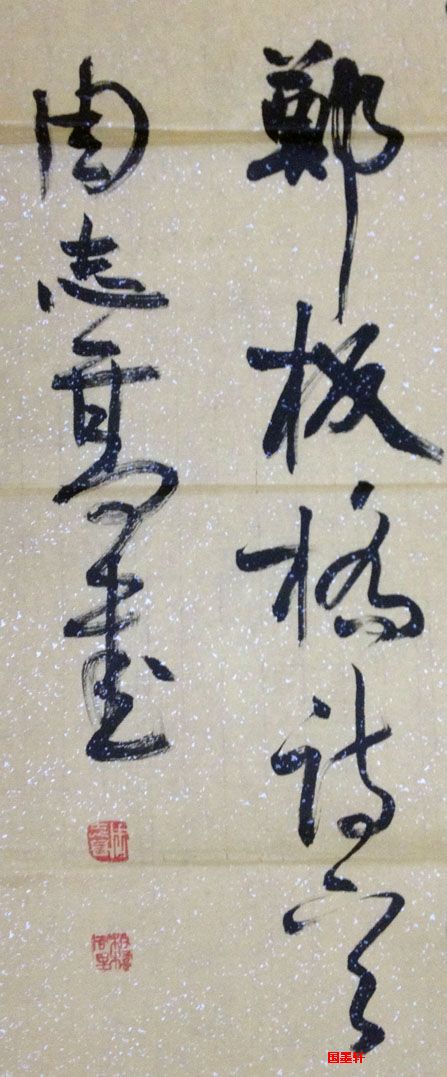 鄭板橋詩
周志高書
国墨轩